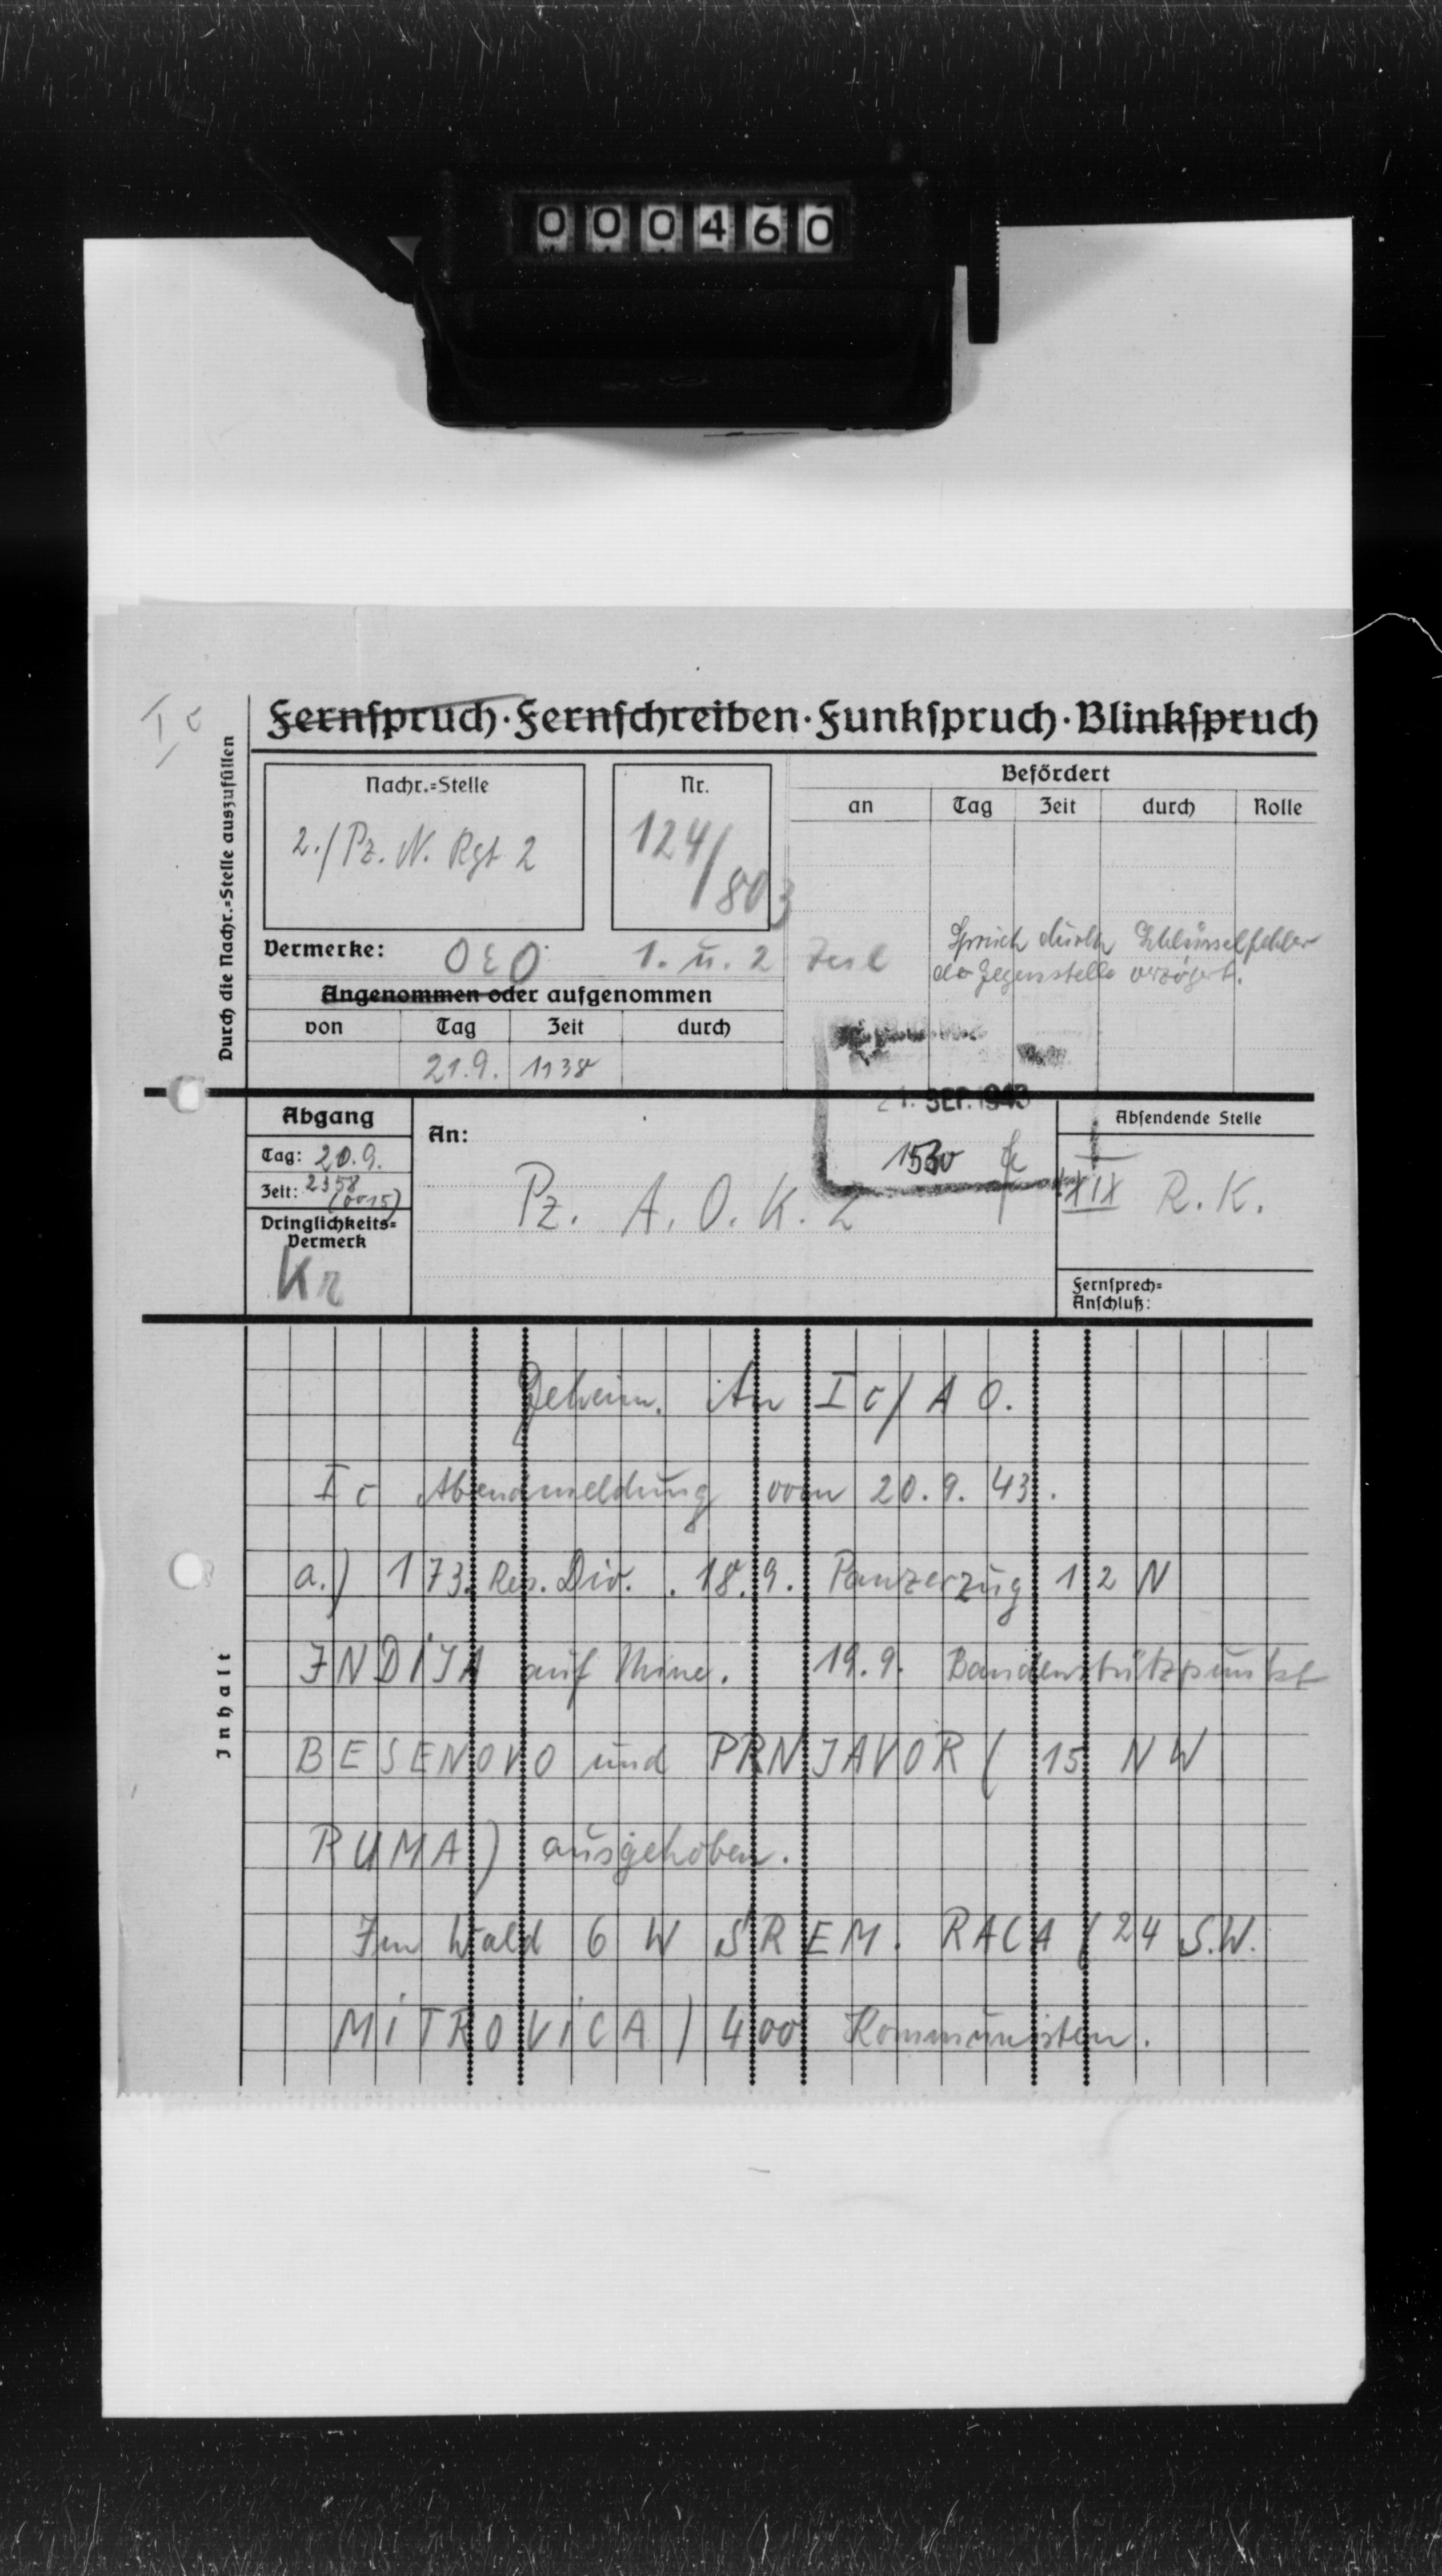 000460
I c
Fernspruch · Fernschreiben · Funkspruch · Blinkspruch
Durch die Nachr.=Stelle auszufüllen
Nachr.=Stelle
2./Pz. N. Rgt 2
Nr.
124/803
Befördert
an Tag Zeit durch Rolle
Vermerke:
1. u. 2 Teil
Spruch durch Schlüsselfehler
der Gegenstelle verzögert.
Angenommen oder aufgenommen
von Tag Zeit durch
21.9. 1138
21. SEP. 1943
1530
Abgang
Tag: 20.9.
Zeit: 2358
(0015)
Dringlichkeits=
Vermerk
Kr
An:
Pz. A. O. K. 2
Absendende Stelle
XIX R. K.
Fernsprech=
Anschluß:
Inhalt
Geheim. An I c / A O.
I c Abendmeldung vom 20. 9. 43.
a.) 173. Res. Div. . 18. 9. Panzerzug 12 N
INDIJA auf Mine. 19. 9. Bandenstützpunkt
BESENOVO und PRNJAVOR ( 15 NW
RUMA ) ausgehoben.
Im Wald 6 W SREM. RACA ( 24 S.W.
MITROVICA ) 400 Kommunisten.